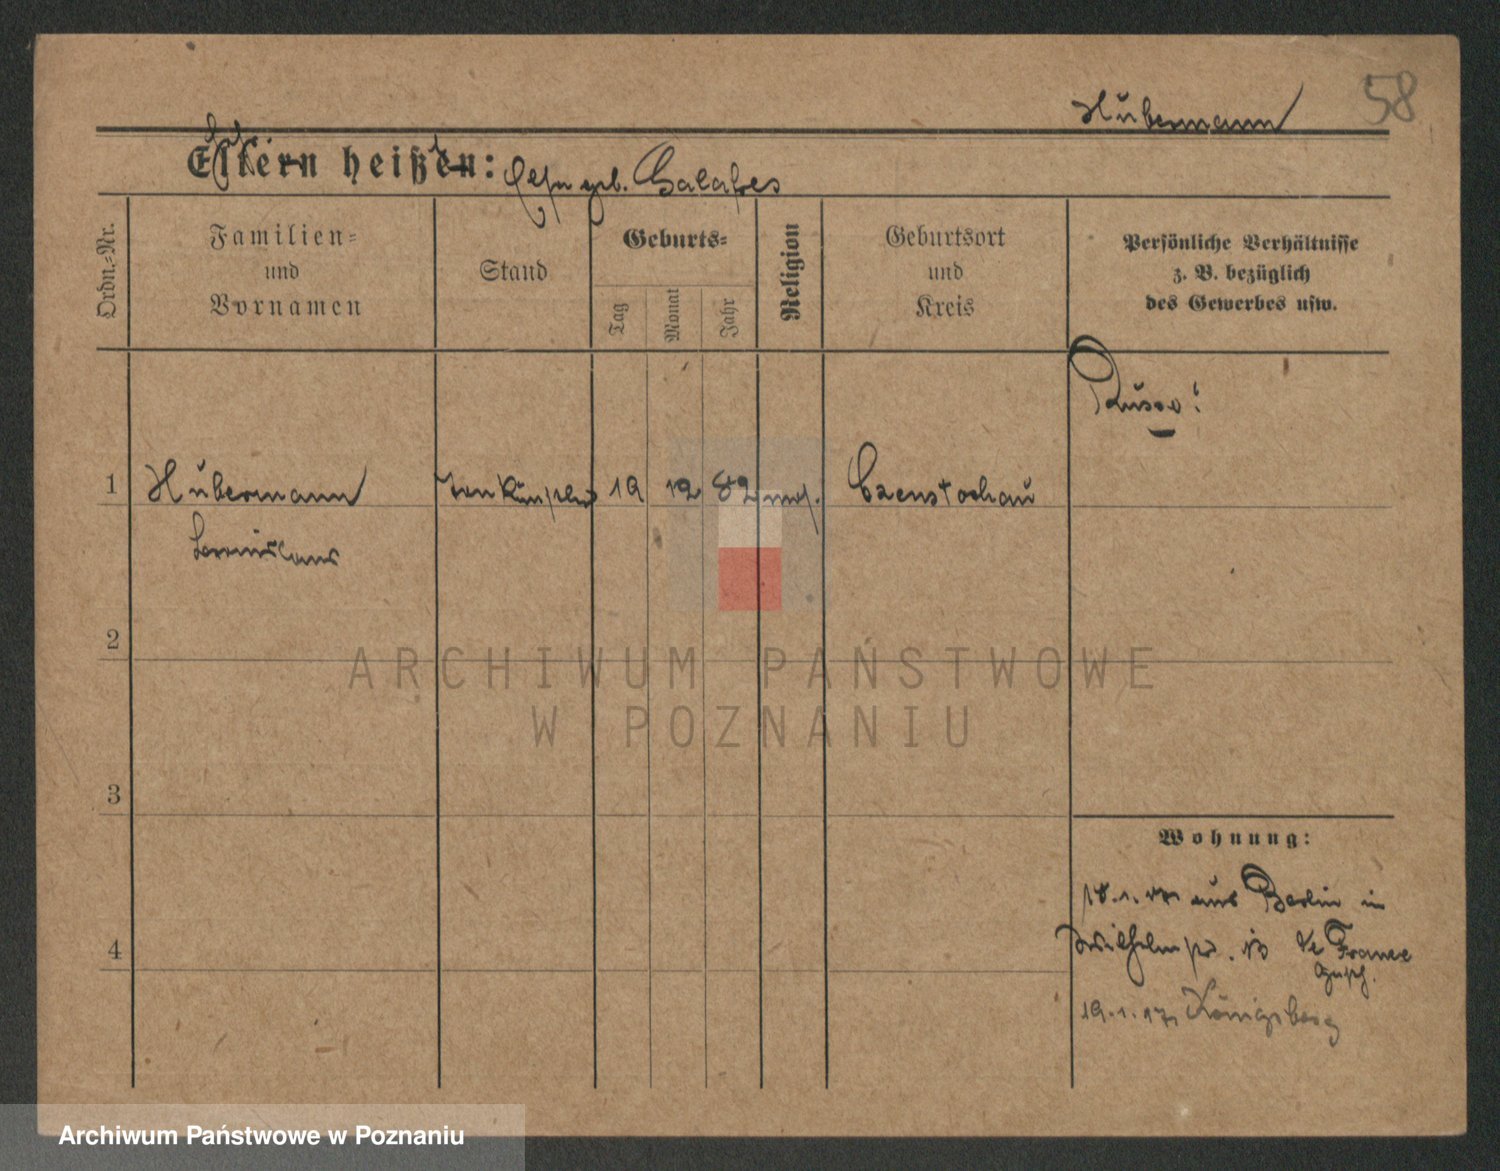 58
Hubermann
Eltern heißen: geb. Galafres
Ordn.=Nr.
Familien=
und
Vornamen
Stand
Geburts=
Tag
Monat
Jahr
Religion
Geburtsort
und
Kreis
Persönliche Verhältnisse
z. B. bezüglich
des Gewerbes usw.
Russe!
1 Hubermann Tonkünstler 19 12 82 mos. Czenstochau
Bronislaus
2
3
4
Wohnung:
18.1.17 aus Berlin in
Wilhelmstr. 13 de France
19.1.17 Königsberg
ARCHIWUM PAŃSTWOWE
W POZNANIU
Archiwum Państwowe w Poznaniu